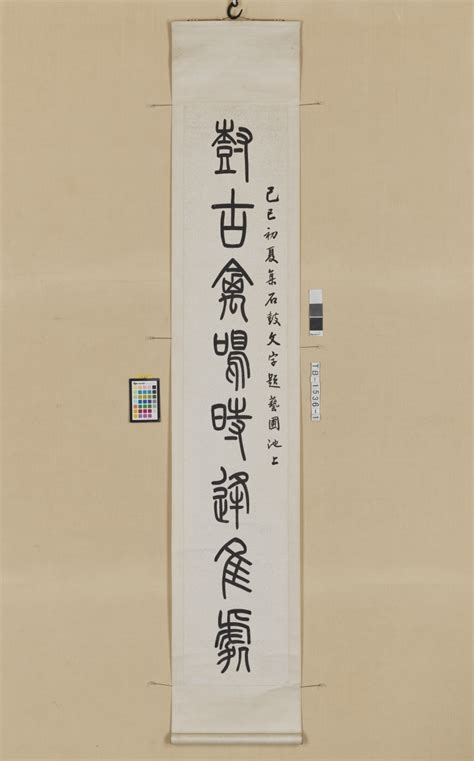 己巳初夏集石鼓文字題藝圃池上
古禽鳴時處
TB-1536-1